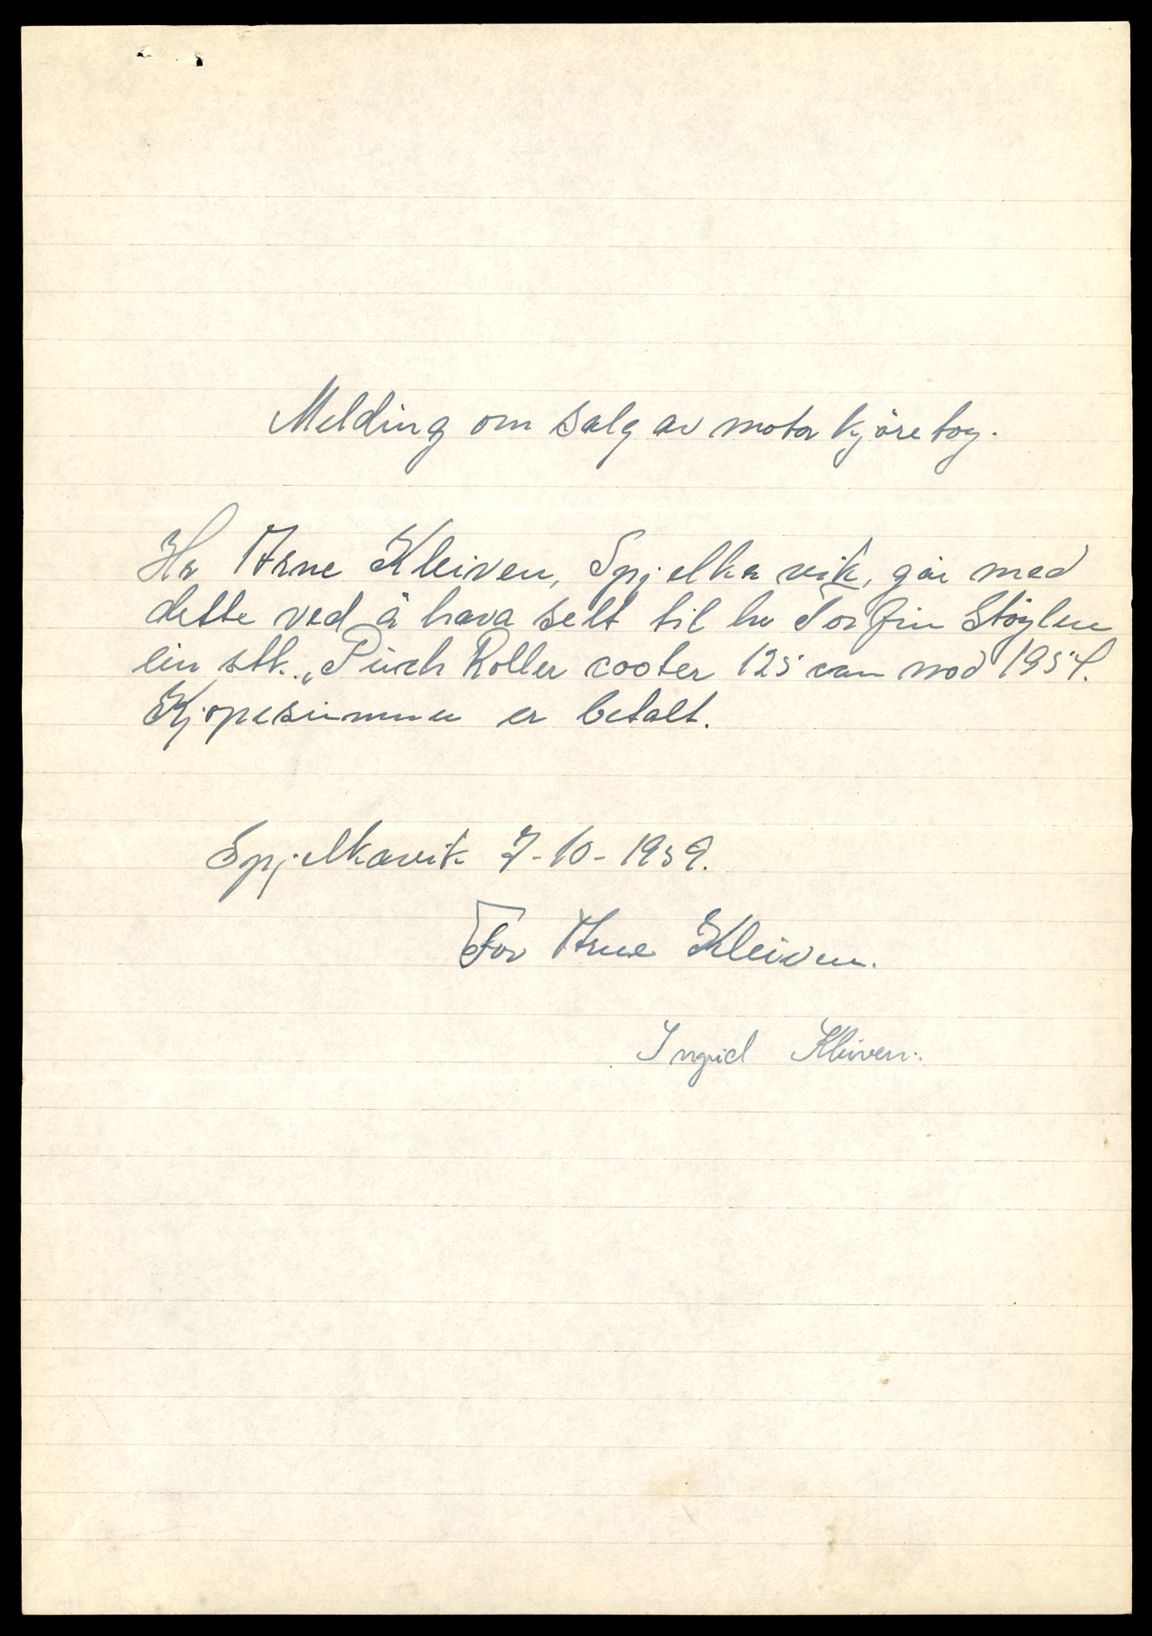 Melding om salg av motor kjöretoy.
Hr Arne Kleiven, Spjelkavik, går med
dette ved å hava selt til hr Torfin Støylen
ein stk. „Puch Roller cooter 125 ccm mod 1954.
Kjøpesummen er betalt.
Spjelkavik 7-10-1959.
For Arne Kleiven.
Ingrid Kleiven.